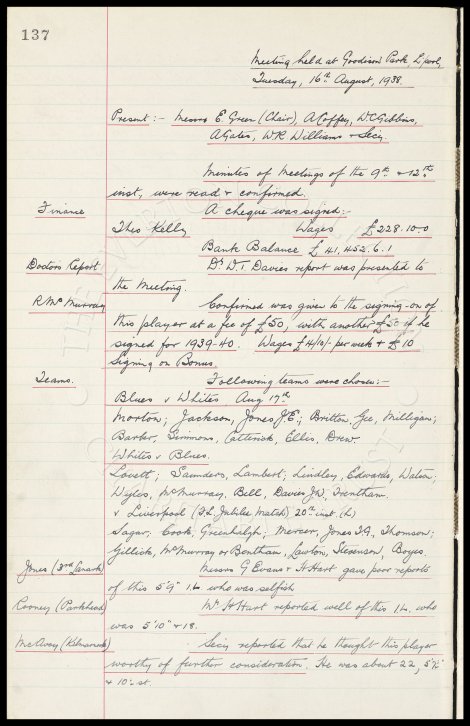 137
Meeting held at Goodison Park, L'pool,
Tuesday, 16th August, 1938.
Present :- Messrs E Green (Chair), A Coffey, W.C. Gibbins,
A Gates, W.R. Williams & Secy.
Minutes of Meetings of the 9th & 12th
inst., were read & confirmed.
Finance A cheque was signed:-
Theo Kelly Wages £228.10-0
Bank Balance £41,452.6.1
Doctor's Report Dr. W.T Davies report was presented to
the Meeting.
R McMurray Confirmed was given to the signing-on of
this player at a fee of £50, with another £50 if he
signed for 1939-40. Wages £4/10/- per week & £10
Signing on Bonus.
Teams. Following teams were chosen:-
Blues v Whites Aug 17th
Morton; Jackson, Jones J.E; Britton, Gee, Milligan;
Barber, Simmons, Catterick, Ellis, Drew.
Whites v Blues.
Lovett; Saunders, Lambert; Lindley, Edwards, Watson;
Wyles, McMurray, Bell, Davies J.W, Trentham.
v Liverpool (F.L Jubilee Match) 20th inst. (h)
Sagar, Cook, Greenhalgh; Mercer, Jones T.G, Thomson;
Gillick, McMurray or Bentham, Lawton, Stevenson, Boyes.
Jones (3rd Lanark) Messrs G Evans & H Hart gave poor reports
of this 5'9" I.L. who was selfish
Rooney (Parkhead) Mr H Hart reported well of this I.L. who
was 5'10" & 18.
McAvoy (Kilmarnock) Secy reported that he thought this player
worthy of further consideration. He was about 22,
& 10½ st.